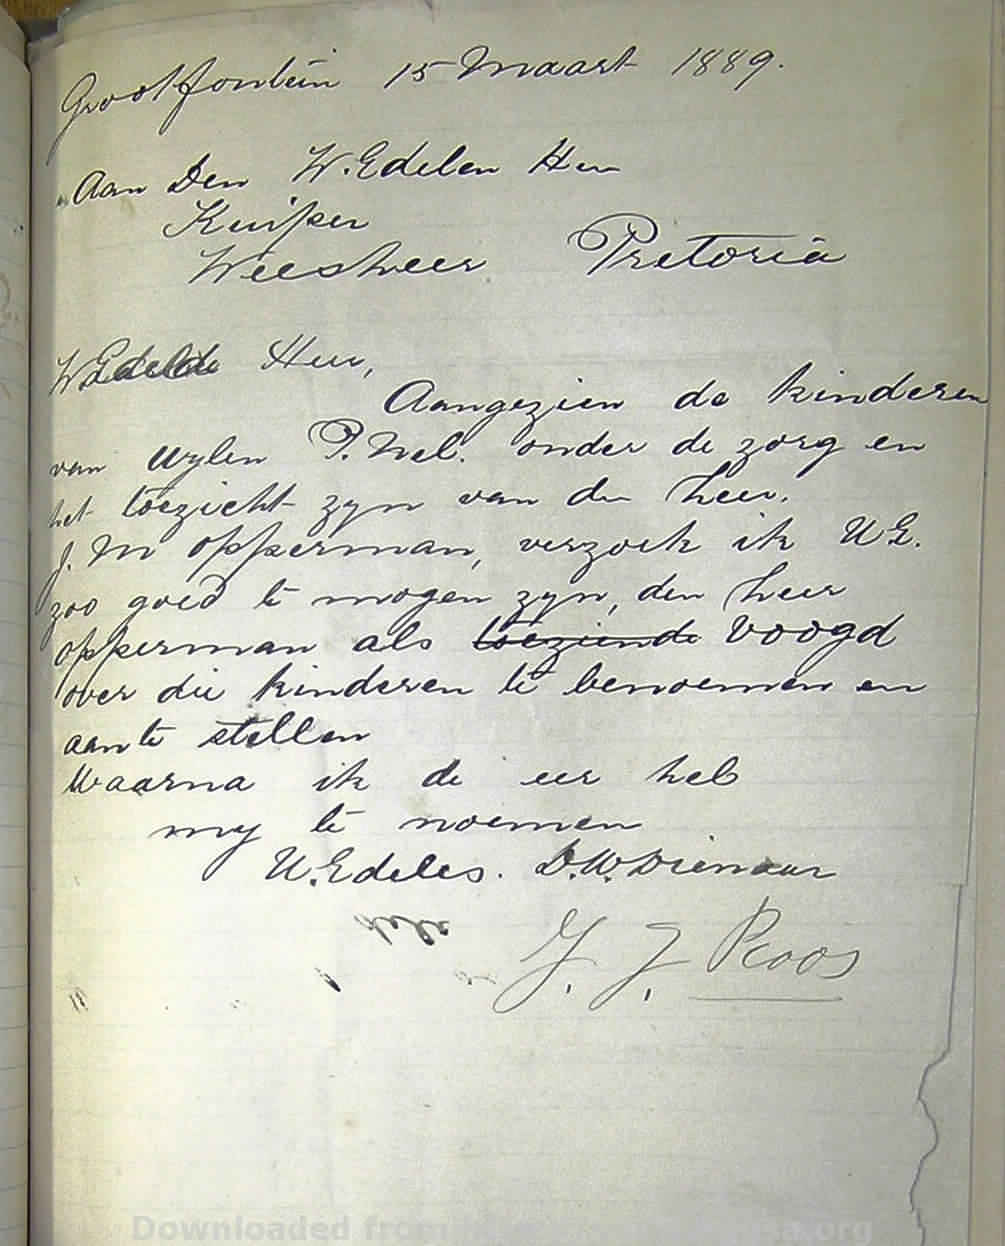 Grootfontein 15 Maart 1889.
Aan Den W.Edelen Heer
Kuijper
Weesheer Pretoria
WEdele Heer,
Aangezien de kinderen
van wylen P. Nel. onder de zorg en
het toezicht zyn van den heer.
J. M opperman, verzoek ik UE.
zoo goed te mogen zyn, den heer
opperman als toeziende voogd
over die kinderen te benoemen en
aan te stellen
Waarna ik de eer heb
my te noemen
U.Edeles. D.W. Dienaar
J. J. Roos
Downloaded from